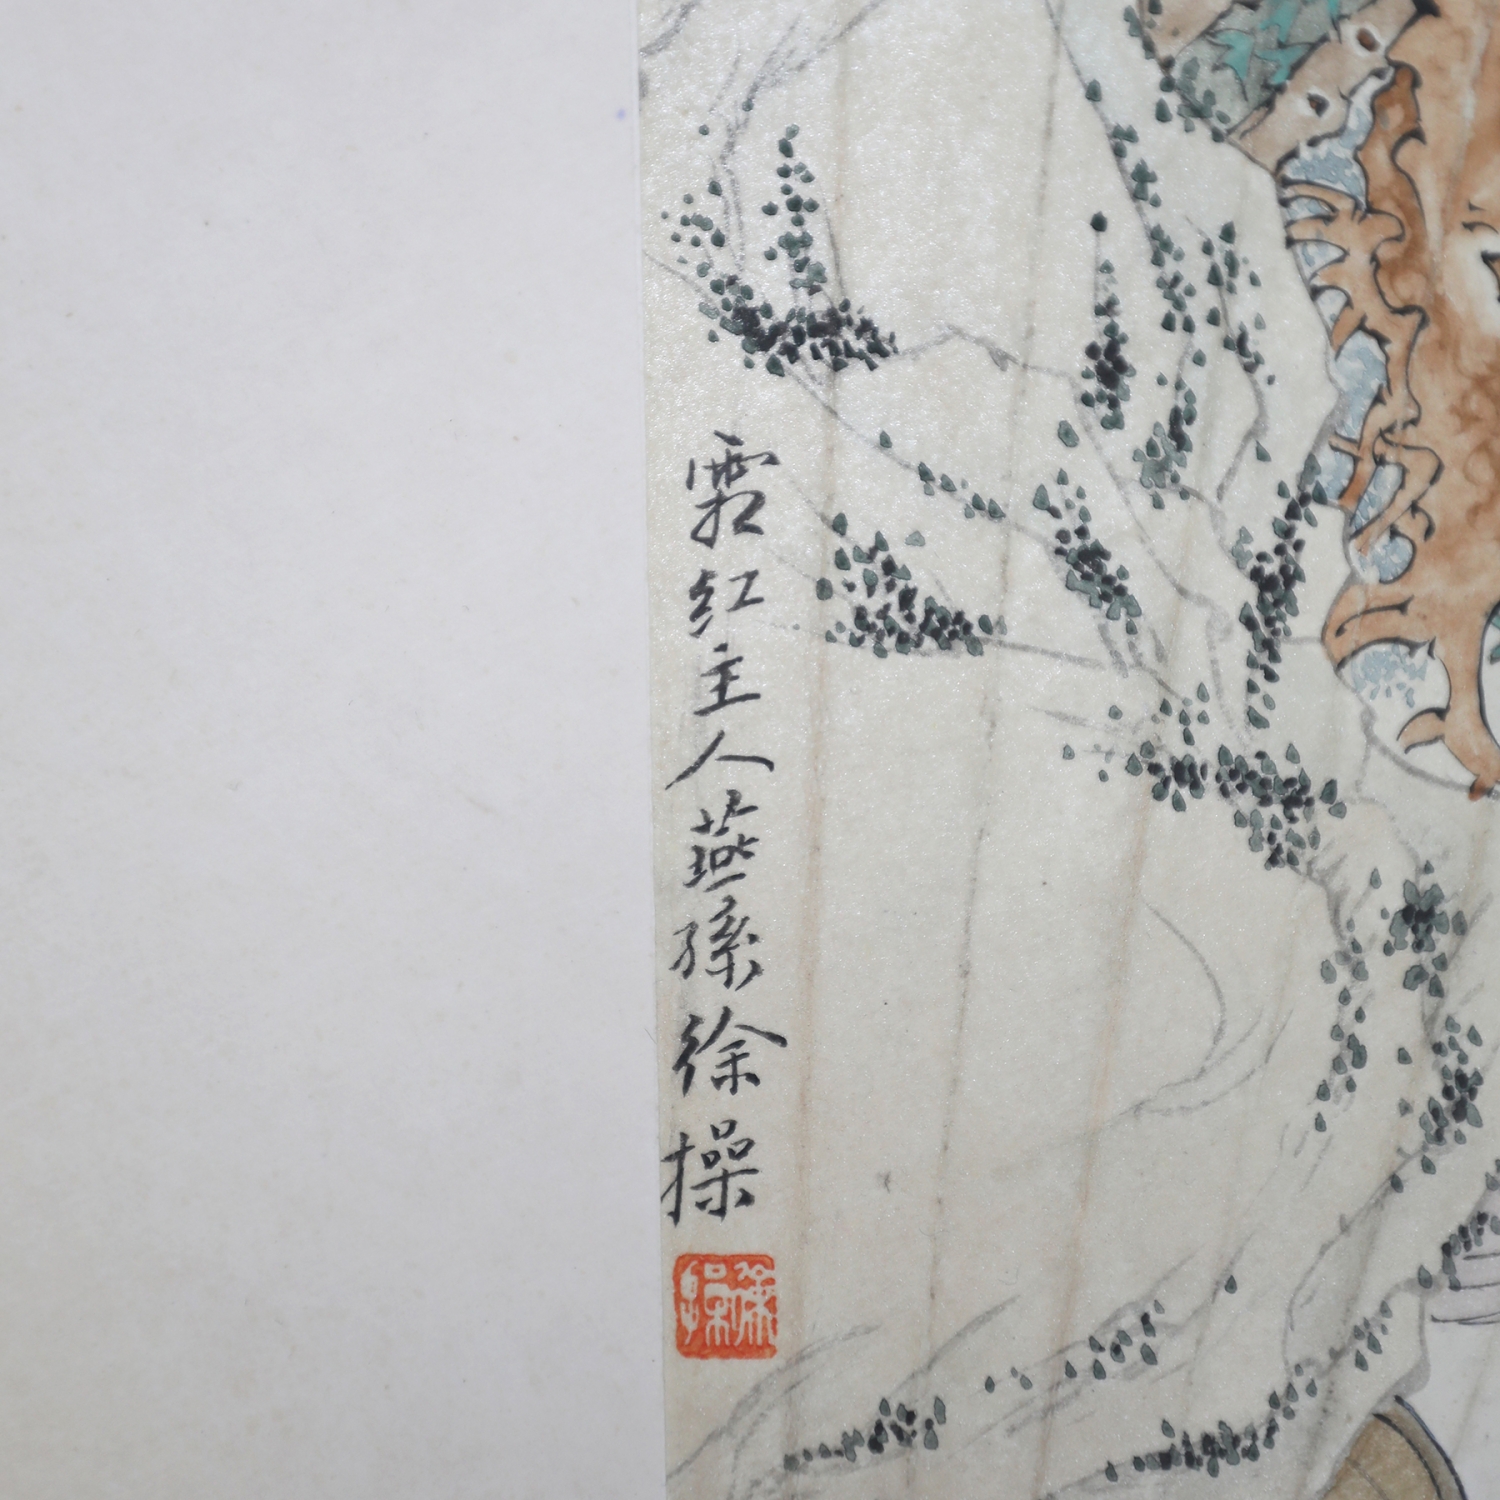 霜红主人燕孫徐操
徐操